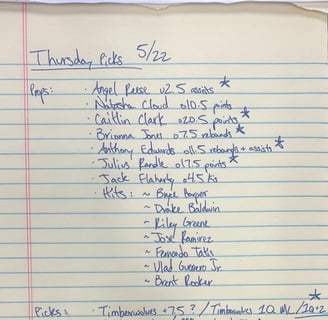 Thursday Picks 5/22
Props: · Angel Reese u2.5 assists *
· Natasha Cloud o10.5 points
· Caitlin Clark o20.5 points *
· Brionna Jones o7.5 rebounds *
· Anthony Edwards o11.5 rebounds + assists *
· Julius Randle o17.5 points *
· Jack Flaherty o4.5 Ks
· Hits: ~ Bryce Harper
~ Drake Baldwin
~ Riley Greene
~ José Ramirez
~ Fernando Tatis
~ Vlad Guerrero Jr.
~ Brent Rooker
Picks: · Timberwolves +7.5? / Timberwolves 1Q ML / 1Q+2